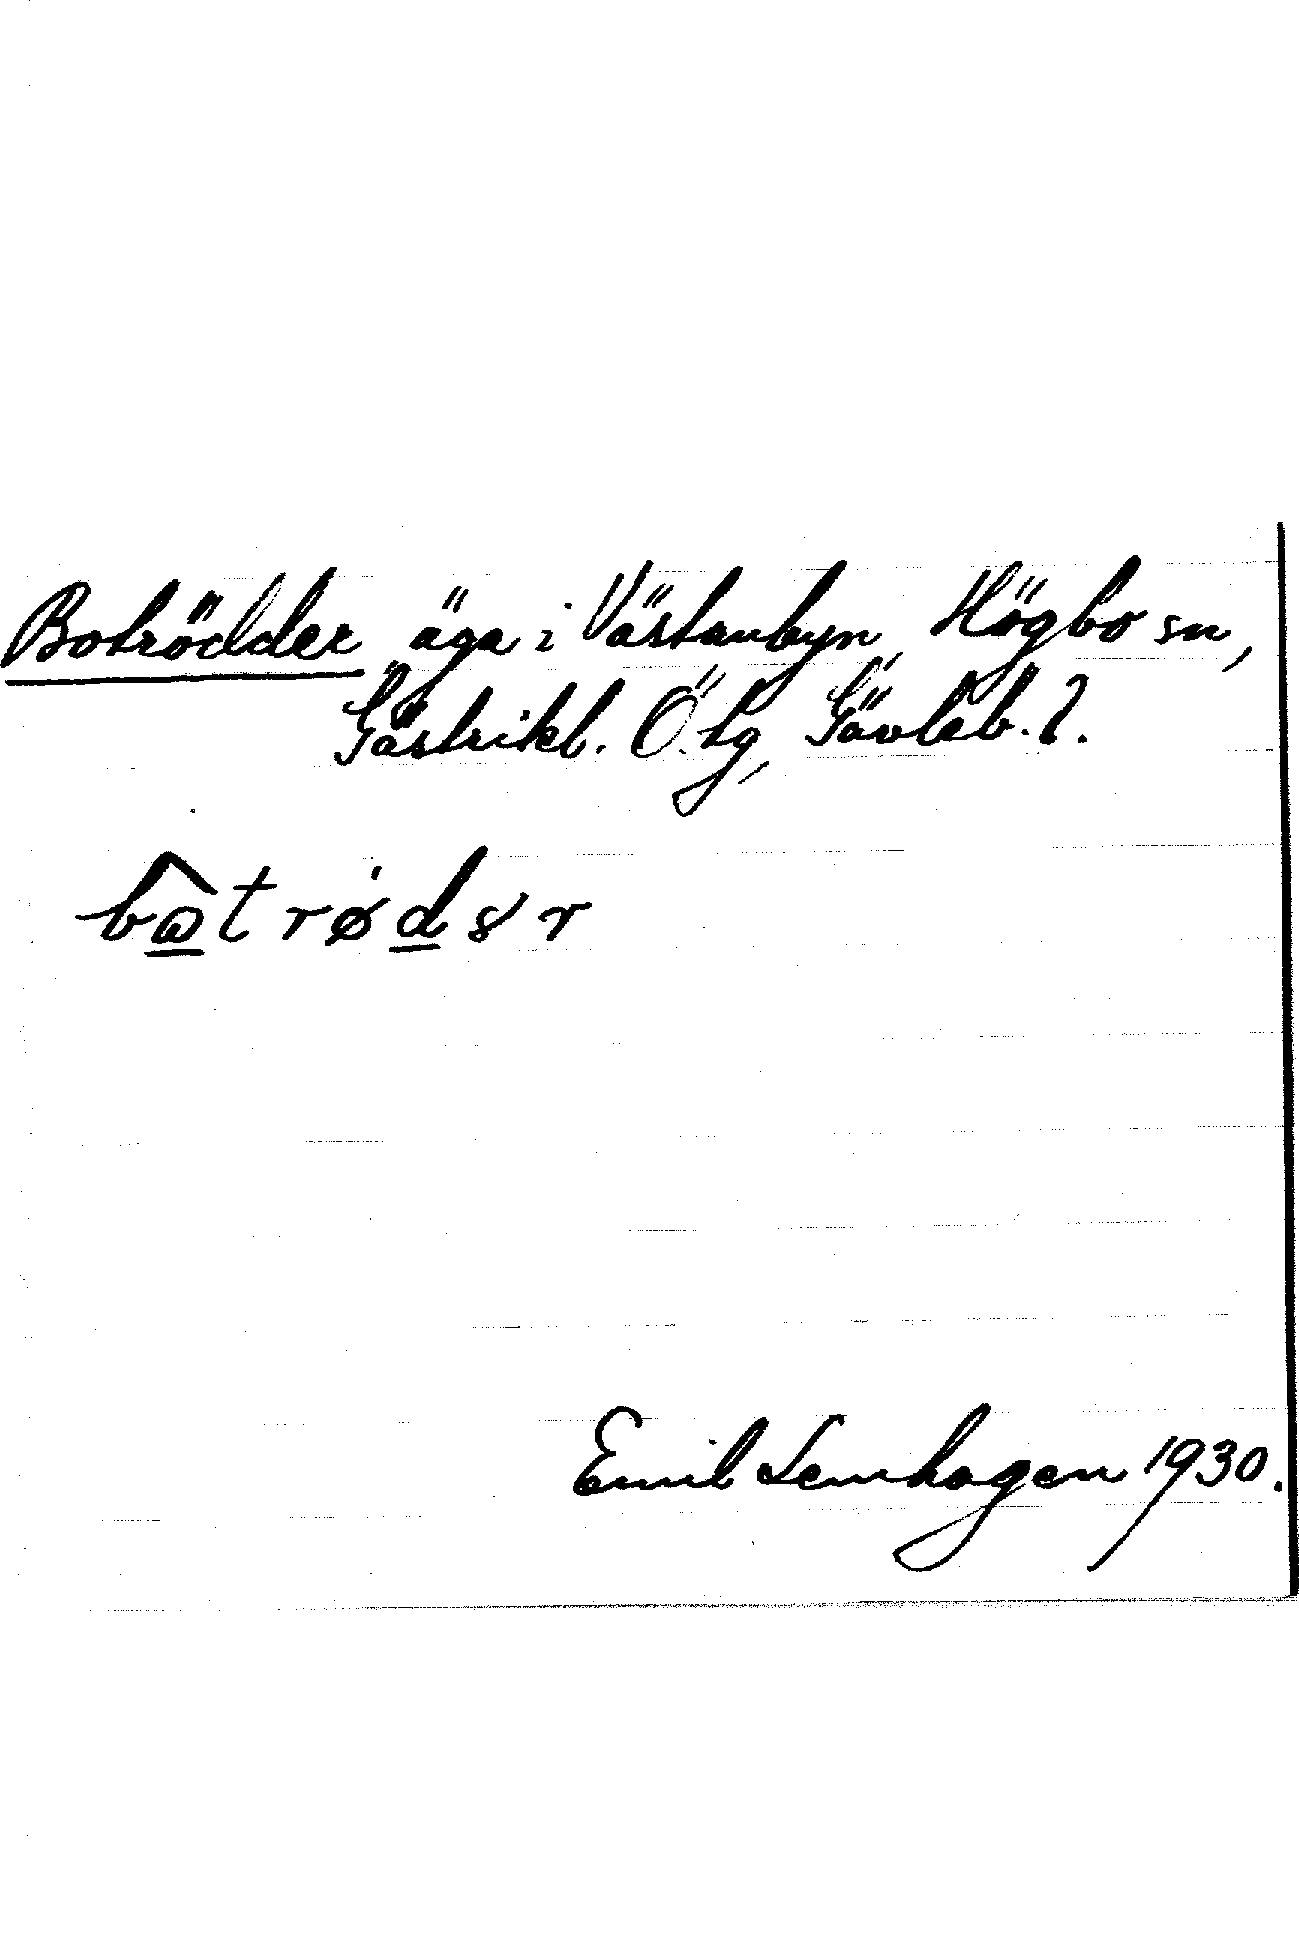 Botrödder äga i Västanbyn, Högbo sn,
Gästrikl. Ö tg, Gävleb. l.
bωtrødər
Emil Lenhagen 1930.